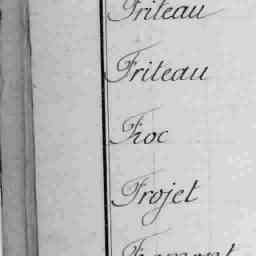 Friteau
Friteau
Froc
Frojet
Froment